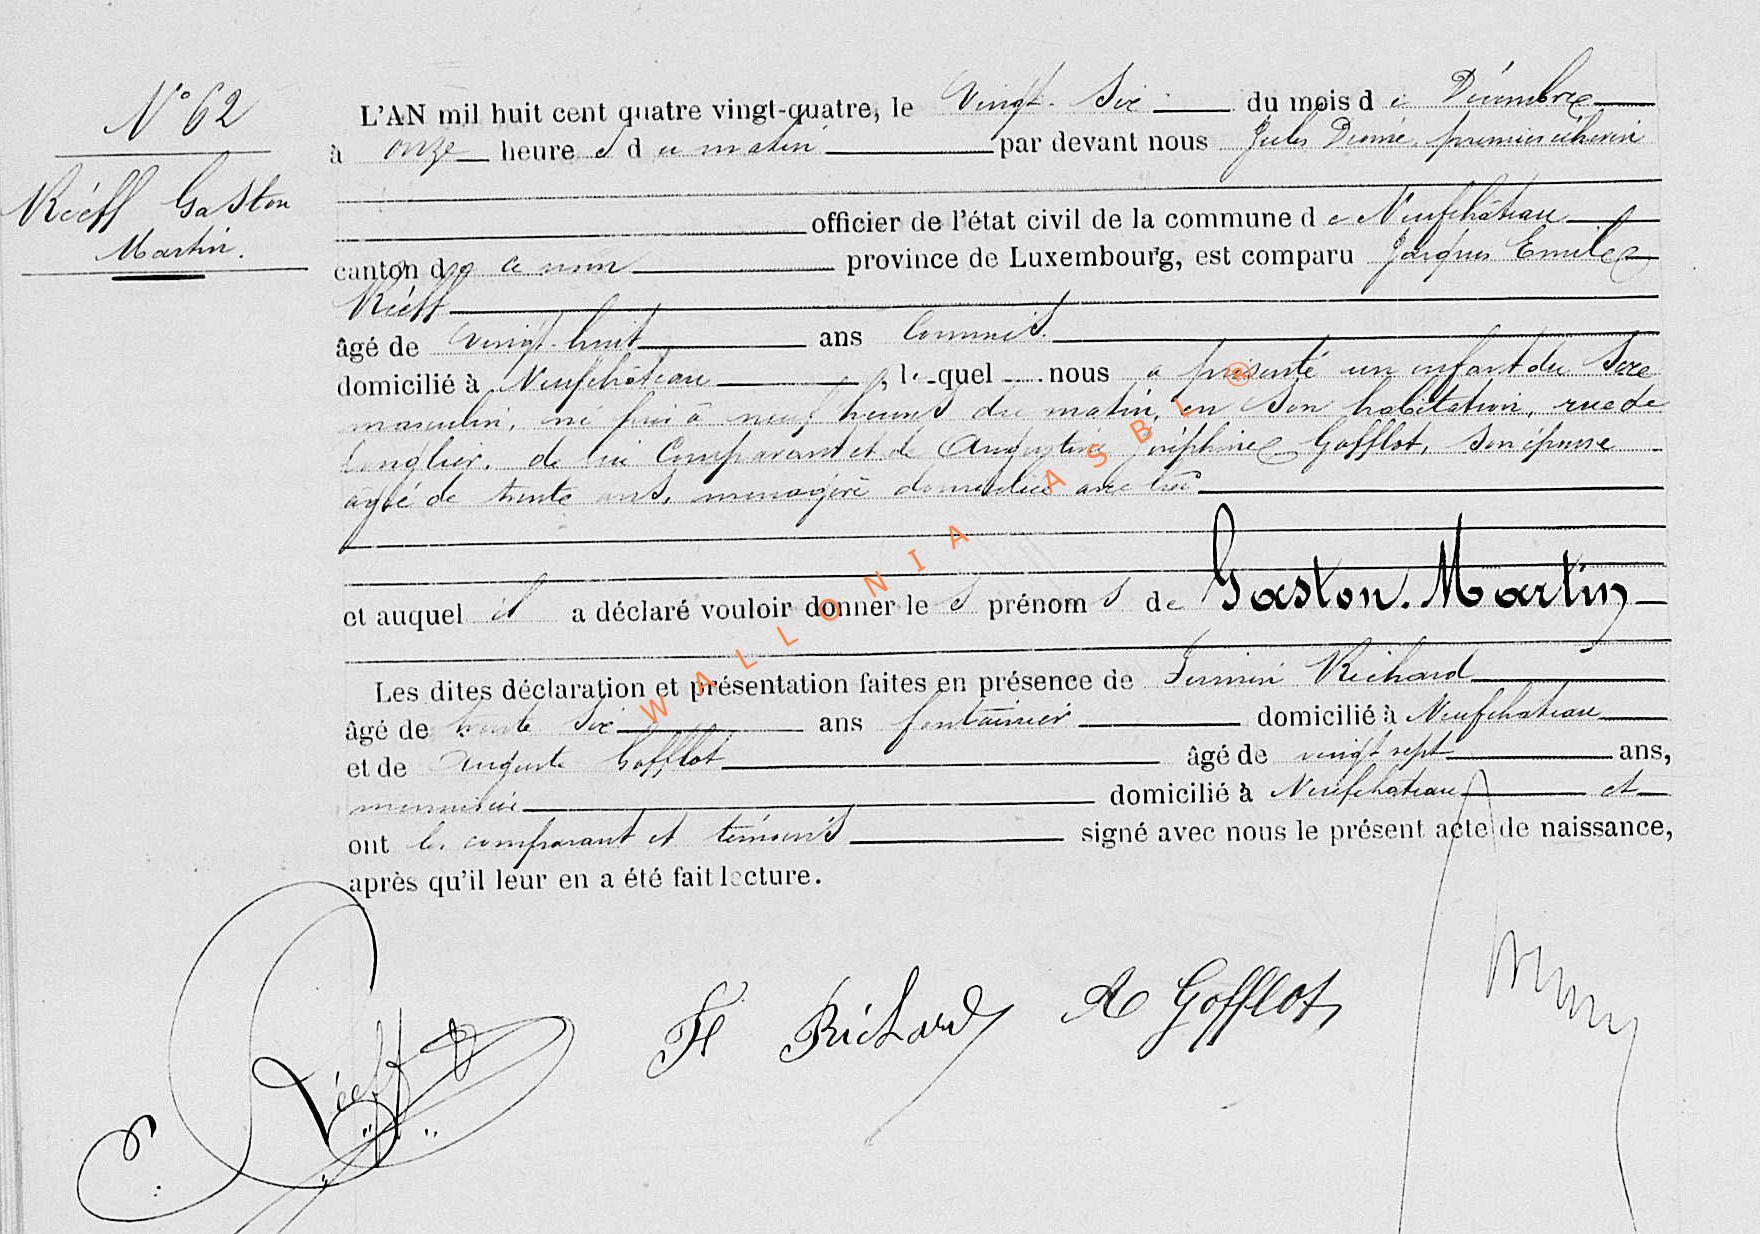 N° 62
Réeff Gaston
Martin.
L'AN mil huit cent quatre vingt-quatre, le Vingt-Six du mois de Décembre
à onze heures du matin par devant nous Jules premier échevin
officier de l'état civil de la commune de Neufchâteau
canton de ce nom province de Luxembourg, est comparu Jacques Emile
Réeff
âgé de vingt-huit ans Commis
domicilié à Neufchâteau, lequel nous a présenté un enfant du Sexe
masculin, né à neuf heures du matin, en Son habitation, rue de
Longlier, de lui Comparant et de Augustine Joséphine Gofflot, Son épouse
âgé de trente ans, menagère domiciliée avec lui
et auquel il a déclaré vouloir donner les prénoms de Gaston. Martin
Les dites déclaration et présentation faites en présence de Firmin Richard
âgé de trente Six ans fontainier domicilié à Neufchateau
et de Auguste Gofflot âgé de vingt sept ans,
menuisier domicilié à Neufchateau et
ont le comparant et témoins signé avec nous le présent acte de naissance,
après qu'il leur en a été fait lecture.
Réeff
F Richard
A Gofflot
WALLONIA ASBL ®